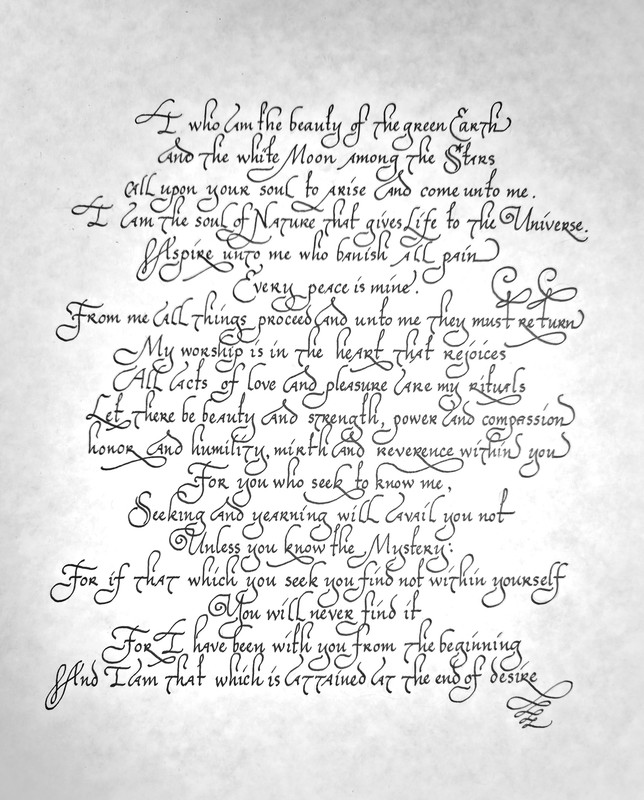 I who am the beauty of the green Earth
and the white Moon among the Stars
all upon your soul to arise and come unto me.
I am the soul of Nature that gives Life to the Universe.
Aspire unto me who banish all pain
Every peace is mine.
From me all things proceed and unto me they must return
My worship is in the heart that rejoices
All acts of love and pleasure are my rituals
Let there be beauty and strength, power and compassion
honor and humility, mirth and reverence within you
For you who seek to know me,
Seeking and yearning will avail you not
Unless you know the Mystery:
For if that which you seek you find not within yourself
You will never find it
For I have been with you from the beginning
And I am that which is attained at the end of desire